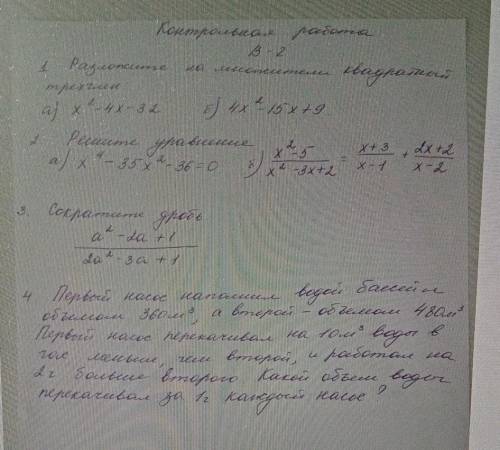 Контрольная работа
В-2
1 Разложите на множители квадратный
трехчлен
а) x²-4x-32 б) 4x²-15x+9
2 Решите уравнение
а) x⁴-35x²-36=0 б) (x²-5)/(x²-3x+2) = (x+3)/(x-1) + (2x+2)/(x-2)
3. Сократите дробь
(a²-2a+1)/(2a²-3a+1)
4 Первый насос наполнил водой бассейн
объемом 360м³, а второй - объемом 480м³
Первый насос перекачивал на 10м³ воды в
час меньше, чем второй, и работал на
2ч больше второго Какой объем воды
перекачивал за 1ч каждый насос?